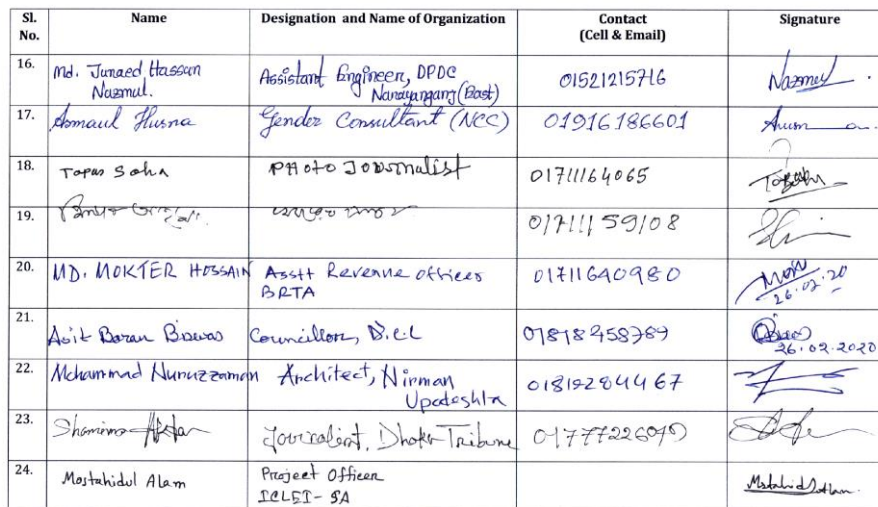 Sl. No. Name Designation and Name of Organization Contact (Cell & Email) Signature
16. Md. Junaed Hassan Nazmul. Assistant Engineer, DPDC Narayanganj (East) 01521215716 Nazmul
17. Asmaul Husna Gender Consultant (NCC) 01916186601
18. Tapas Saha PHOTO JOURNALIST 01711164065
19. 01711159108
20. MD. MOKTER HOSSAIN Asstt Revenue officer BRTA 01711640980 26.02.20
21. Asit Baran Biswas Councillor, 01818458789 26.02.2020
22. Mohammad Nuruzzaman Architect, Nirman Upodeshta 01819284467
23. Shamima Akter Journalist, Dhaka Tribune
24. Mostahidul Alam Project Officer ICLEI-SA